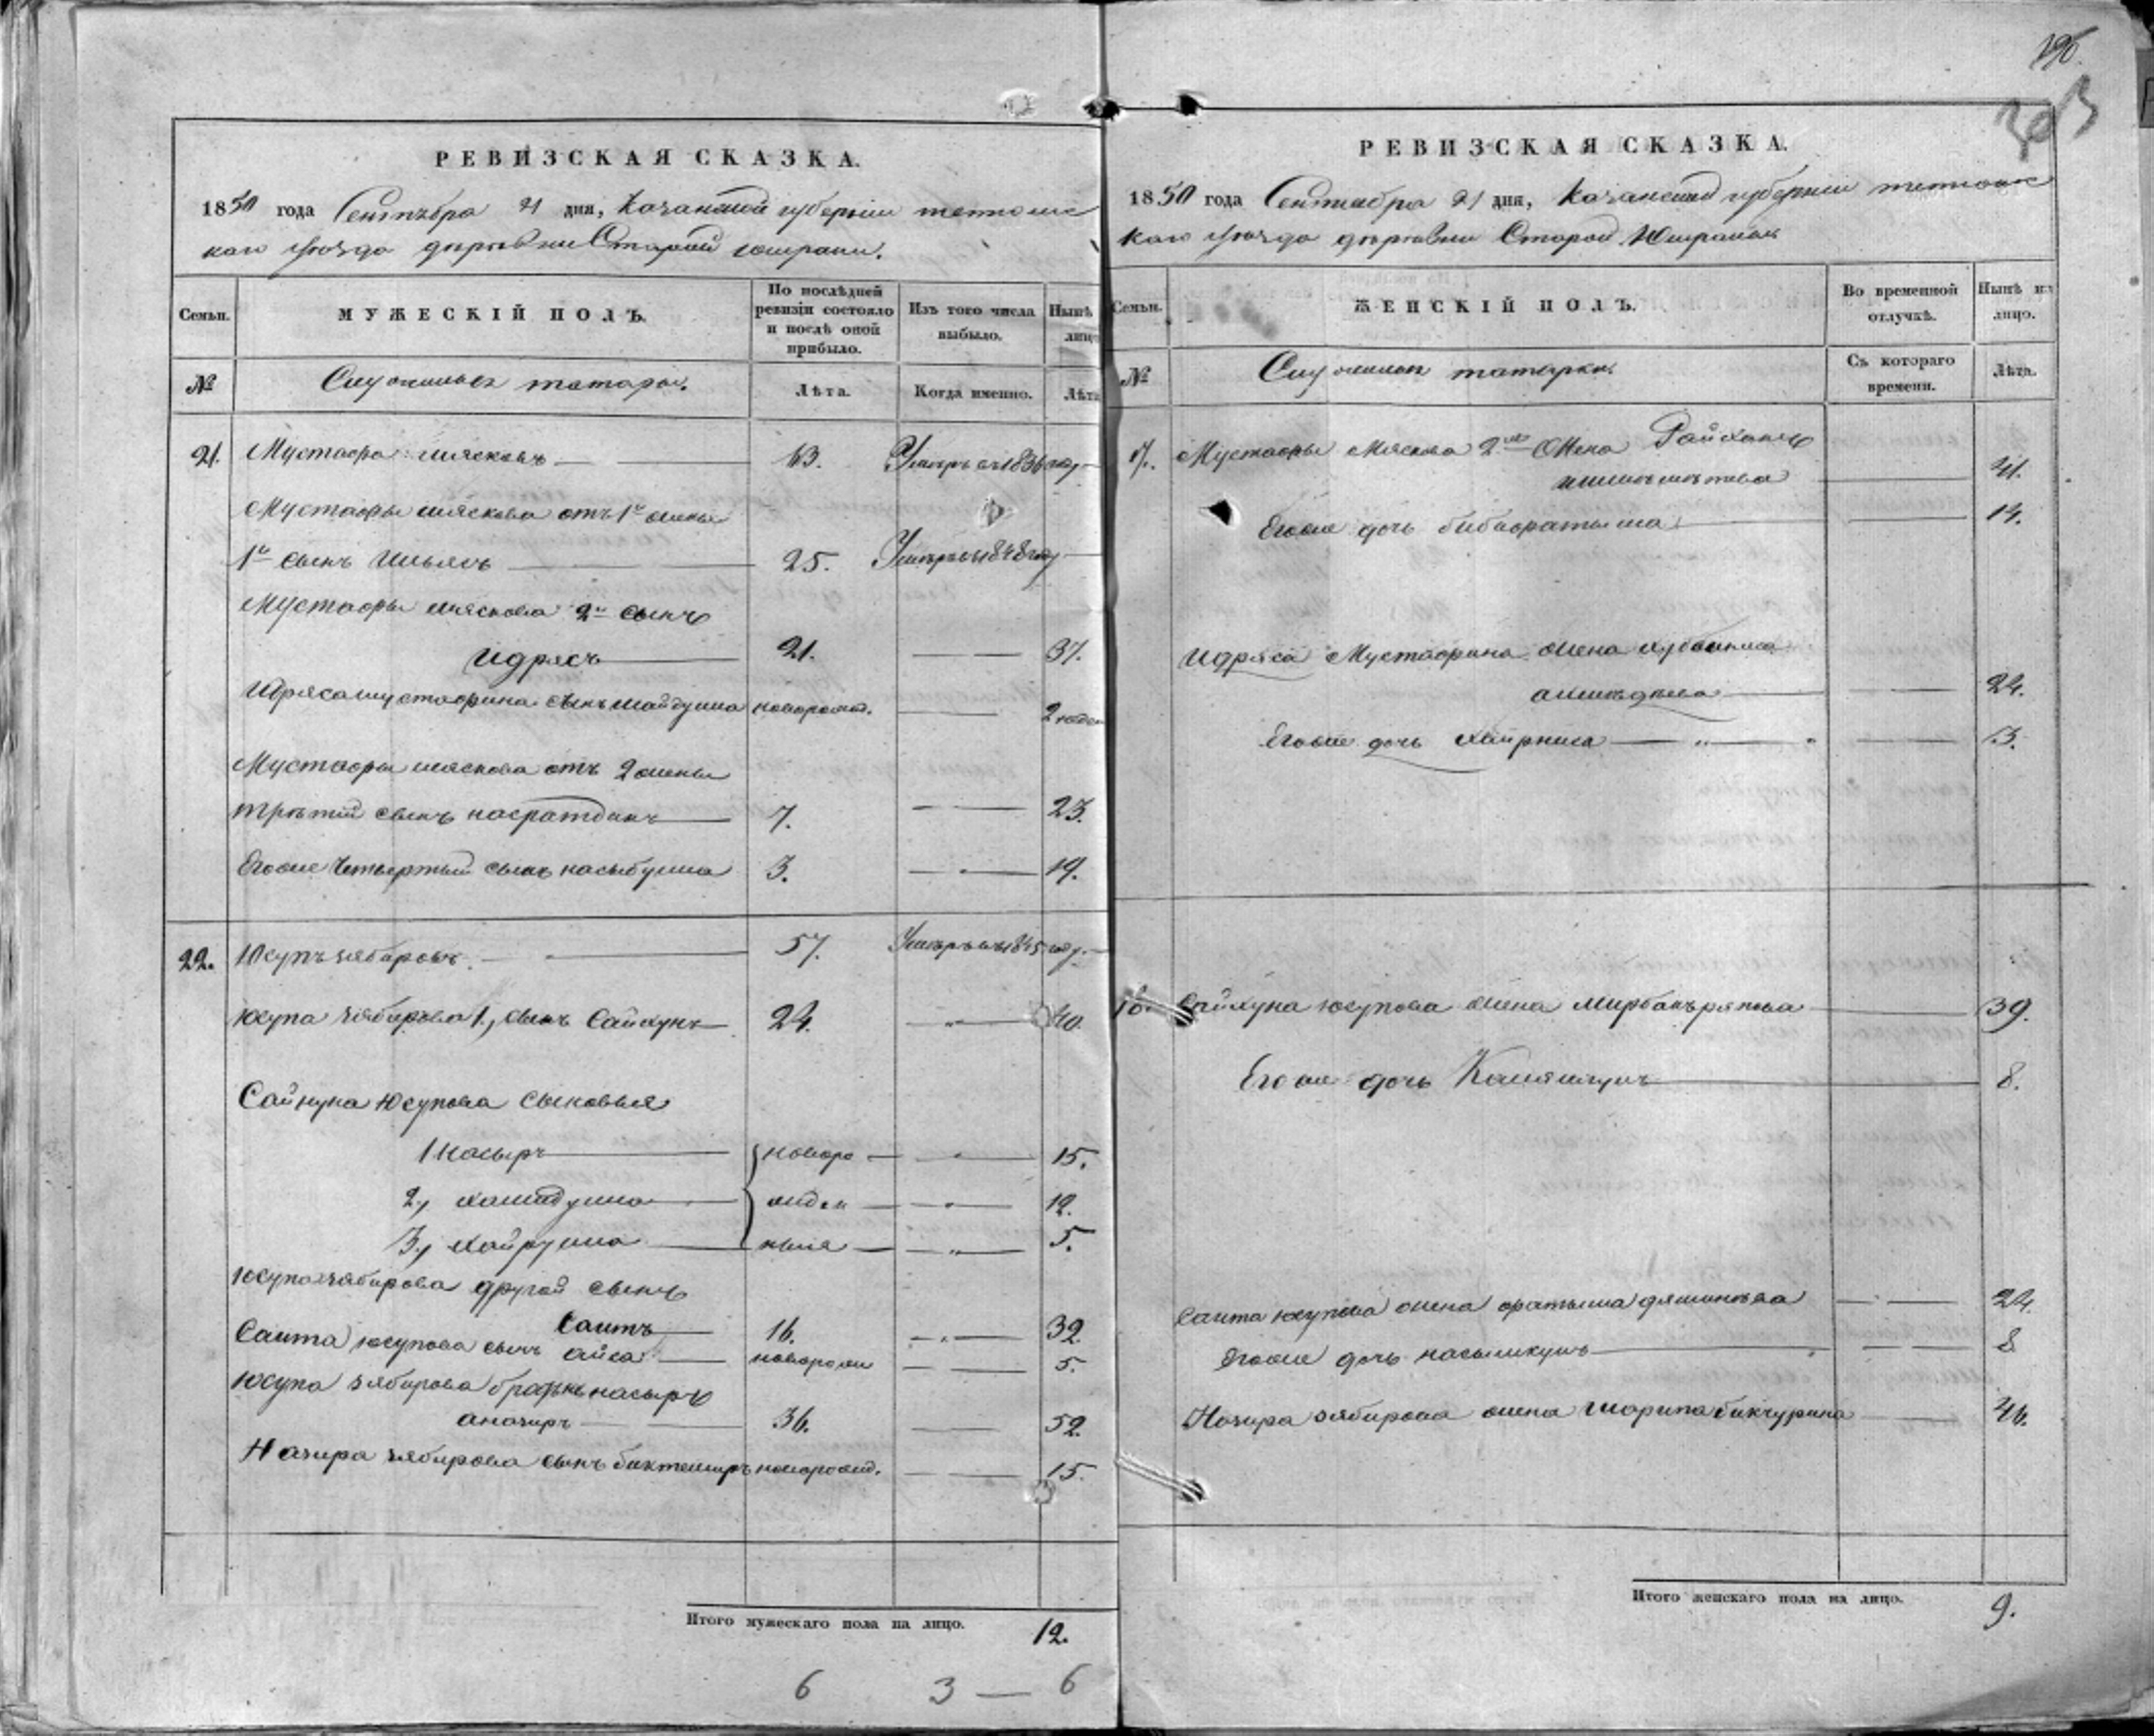 196.
303
РЕВИЗСКАЯ СКАЗКА.
1850 года Сентября 21 дня, Казанской губернии тетюшс
каго уѣзда деревни Старой юмралы.
Семьи.
МУЖЕСКІЙ ПОЛЪ.
По послѣдней ревизіи состояло и послѣ оной прибыло.
Изъ того числа выбыло.
Нынѣ лицо
№
Служилыхъ татары.
Лѣта.
Когда именно.
Лѣта
21. Мустафа Илясковъ 63. Умеръ въ 1836 году
Мустафы иляскова отъ 1й жены
1й сынъ Ильясъ 25. Умеръ въ 1848 году
Мустафы иляскова 2й сынъ
Идрясъ 21. 37.
Идряса мустафина сынъ новорожд. 2 недел
Мустафы иляскова отъ 2 жены
третій сынъ насратдинъ 7. 23.
Егоже Четвертый сынъ насыбулла 3. 19.
22. Юсупъ зябировъ 57. Умеръ въ 1845 году.
Юсупа зябирова 1, сынъ Сайхунъ 24. 40.
Сайхуна Юсупова Сыновья
1 насыръ новоро 15.
2, хамидулла жден 12.
3, хайрулла ныя 5.
Юсупа зябирова другой сынъ
Саитъ 16. 32.
Саита юсупова сынъ айса новорож 5.
Юсупа зябирова братъ насыръ
аназиръ 36. 52.
Назира зябирова сынъ биктемиръ новорожд. 15.
Итого мужескаго пола на лицо. 12.
6 3 — 6
РЕВИЗСКАЯ СКАЗКА.
1850 года Сентября 21 дня, Казанской губерніи тетюшс
каго уѣзда деревни Старой Юмралы
Семьи.
ЖЕНСКІЙ ПОЛЪ.
Во временной отлучкѣ.
Нынѣ на лицо.
№
Служилыхъ татарки
Съ котораго времени.
Лѣта.
Мустафы Иляскова 2я Жена Райхана
41.
Егоже дочь бибифатыма 14.
Идряса Мустафина жена хубениса
24.
Егоже дочь хайрниса 3.
Сайхуна юсупова жена 39.
Егоже дочь 8.
Саита юсупова жена фатыма 24.
Егоже дочь 8
Назира зябирова жена Шарипа бикчурина 46.
Итого женскаго пола на лицо. 9.